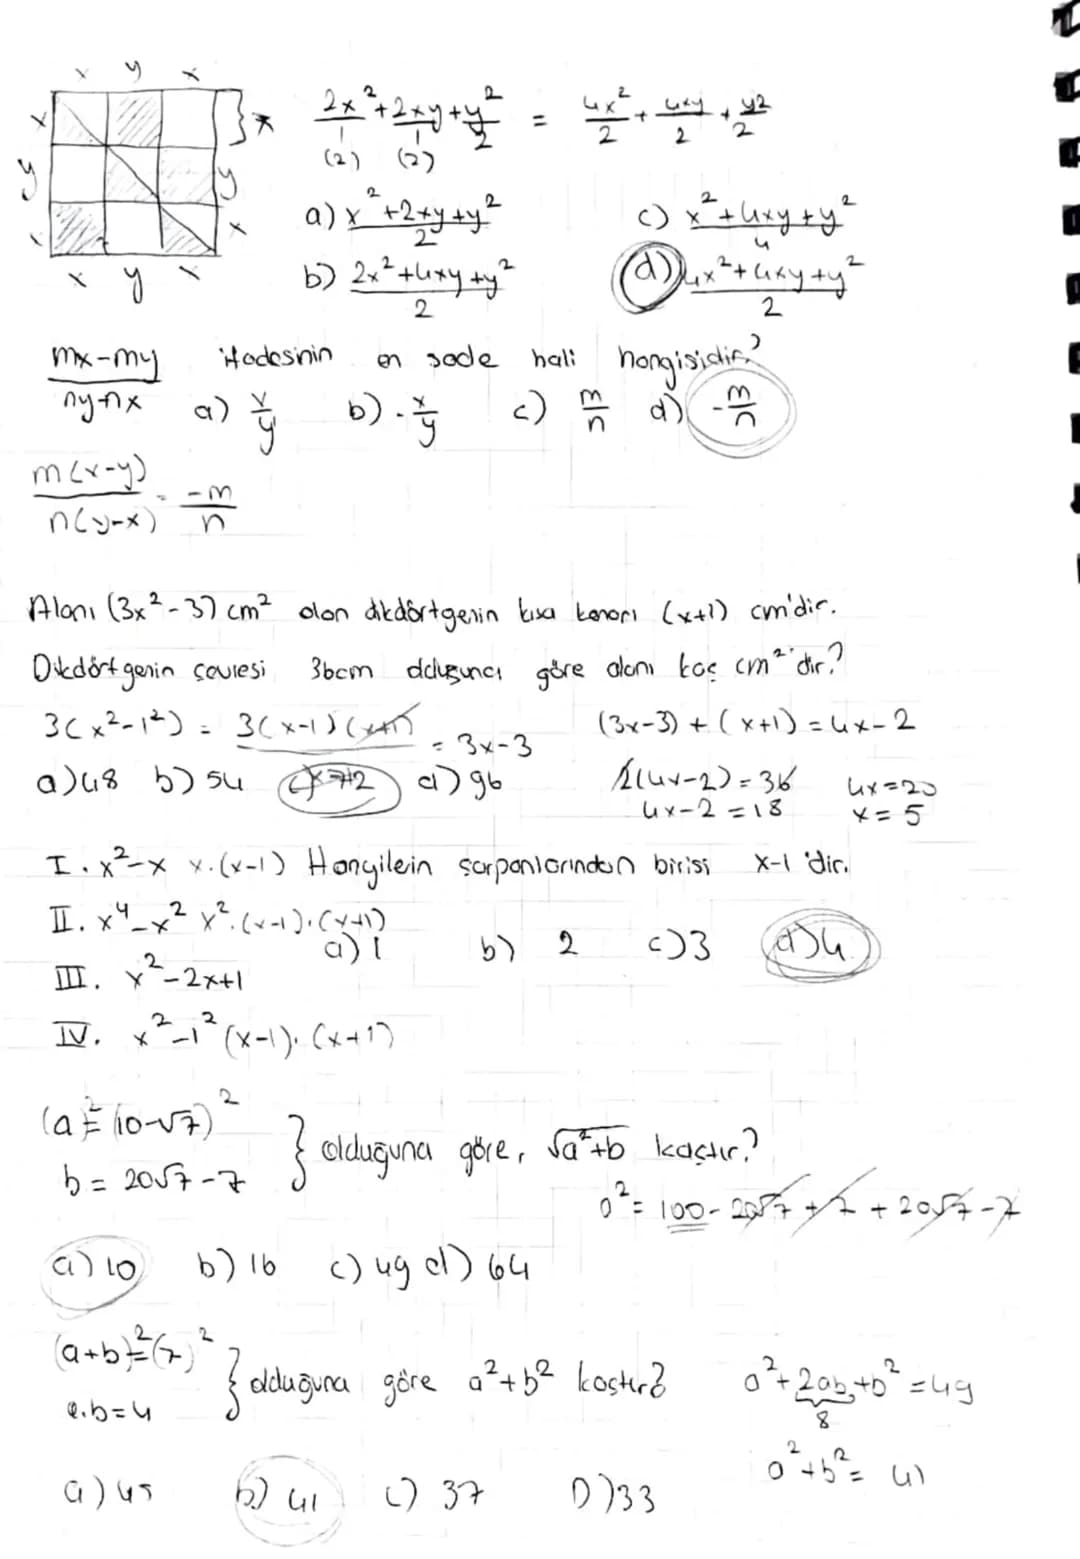 x y x
x
y
x
} x
y
x
x y x
2x²/1 + 2xy/1 + y²/2 = 4x²/2 + 4xy/2 + y²/2
(2) (2)
a) (x²+2xy+y²)/2 c) (x²+4xy+y²)/4
b) (2x²+4xy+y²)/2 d) (4x²+4xy+y²)/2
(mx-my)/(ny-nx) ifadesinin en sade hali hangisidir?
a) x/y b) -x/y c) m/n d) -m/n
m(x-y)/n(y-x) = -m/n
Alanı (3x²-3) cm² olan dikdörtgenin kısa kenarı (x+1) cm'dir.
Dikdörtgenin çevresi 36cm olduğuna göre alanı kaç cm²'dir?
3(x²-1²) = 3(x-1)(x+1) = 3x-3 (3x-3)+(x+1)=4x-2
a)48 b) 54 c) 72 d) 96 2(4x-2)=36 4x=20
4x-2=18 x=5
I. x²-x x.(x-1) Hangilerin çarpanlarından birisi x-1'dir.
II. x⁴-x² x².(x-1).(x+1)
a) 1 b) 2 c)3 d)4
III. x²-2x+1
IV. x²-1² (x-1).(x+1)
(a²=(10-√7)²
b= 20√7-7 } olduğuna göre, √a²+b kaçtır?
a²= 100-20√7+7+20√7-7
a) 10 b) 16 c) 49 d) 64
(a+b)²=(7)²
a.b=4 } olduğuna göre a²+b² kaçtır? a²+2ab+b²=49
8
a²+b²= 41
a) 45 b) 41 c) 37 D)33